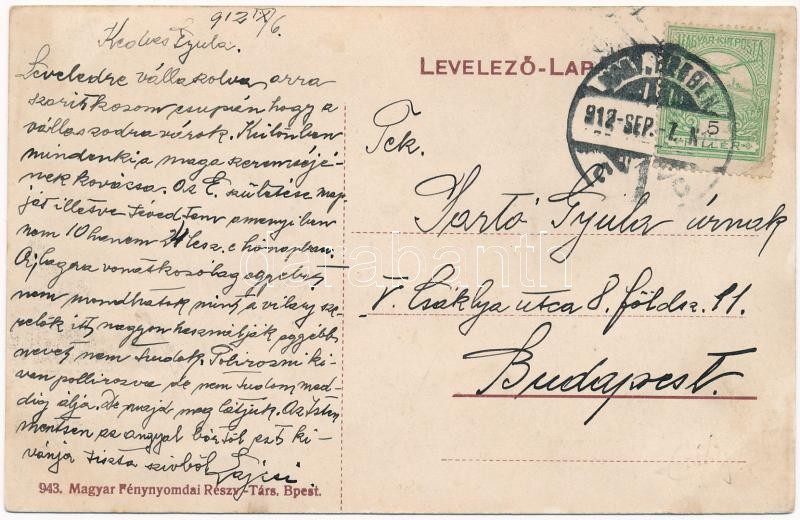 912 IX/6.
Kedves Gyula.
Leveledre válaszolva arra
szoritkozom csupán hogy a
válaszodra várok. Különben
mindenki a maga szerencséjé-
nek kovácsa. Az E. születése nap
ját illetve tévedtem amenyiben
nem 10 hanem 21 lesz e hónapban.
vonatkozólag egyebet
nem mondhatok mint a villany sze-
relők itt nagyon használják egyébb
nevet nem tudok. Polirozni ki
van pollirozva de nem tudom med-
dig álja. De majd meg látjuk. Az Isten
mentsen az angyal bőrtől ezt ki-
vánja tiszta szivből Lajcsi
943. Magyar Fénynyomdai Részv.-Társ. Bpest.
LEVELEZŐ-LAP
MAGYAR KIR. POSTA
5
FILLÉR
912 SEP. 7.
Tek.
Sartó Gyula úrnak
V. Csáklya utca 8. földsz. 11.
Budapest.
darabanth